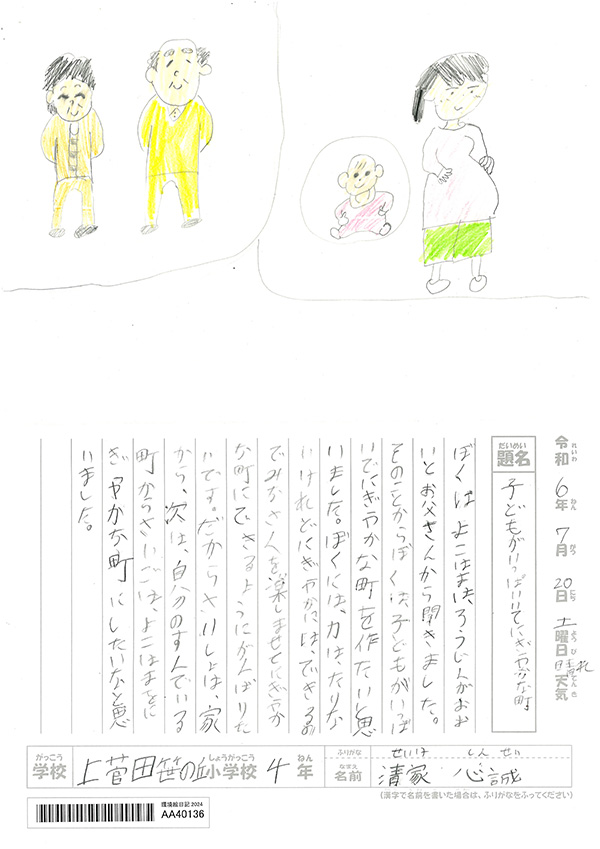 令和6年7月20日土曜日 天気晴れ
れいわ ねん がつ にち ようび てんき
題名 子どもがいっぱいいてにぎやかな町
だいめい
ぼくは、よこはまは、ろうじんがおお
いとお父さんから聞きました。
そのことからぼくは、子どもがいっぱ
いでにぎやかな町を作たいと思
いました。ぼくには、力は、たりな
いけれどにぎやかには、できるの
でみなさんを楽しませてにぎやか
な町にできるようにがんばりた
いです。だからさいしょは、家
から、次は、自分のすんでいる
町からさいごは、よこはまをに
ぎやかな町にしたいなと思
いました。
がっこう しょうがっこう ねん
学校 上菅田笹の丘小学校 4年
ふりがな せいけ しんせい
なまえ
名前 清家 心誠
(漢字で名前を書いた場合は、ふりがなをふってください)
環境絵日記2024
AA40136